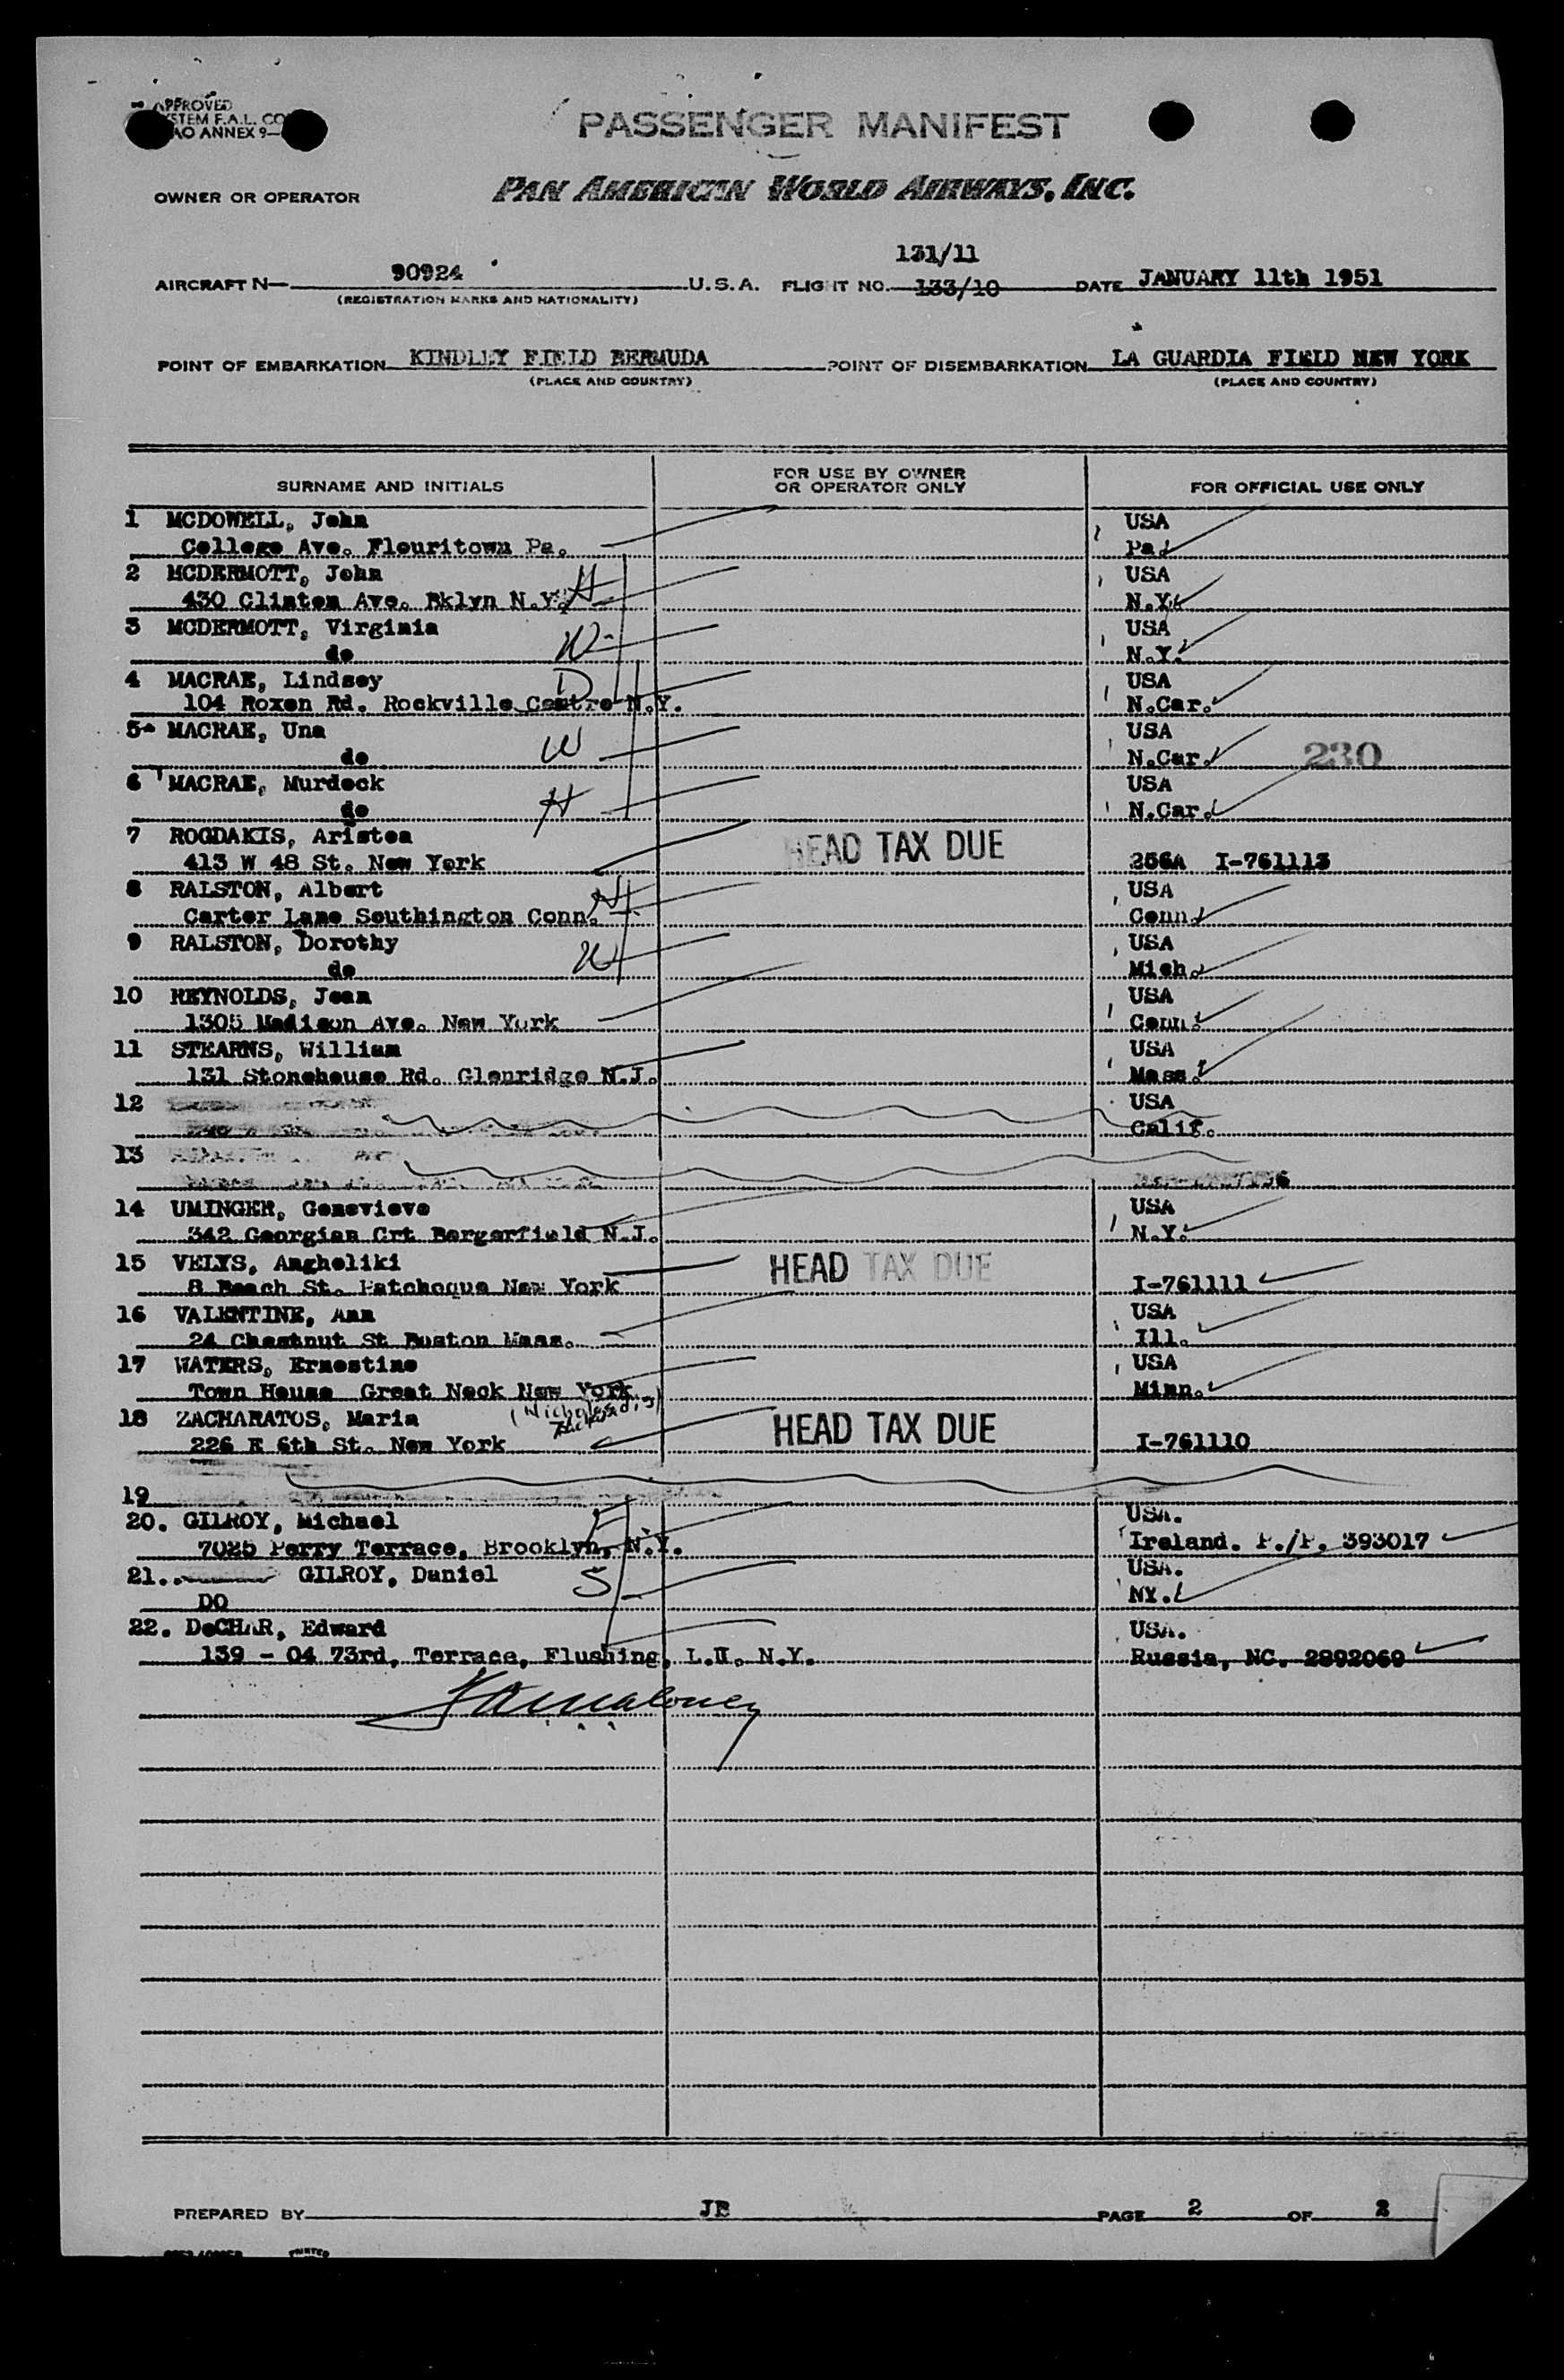 APPROVED
PASSENGER MANIFEST
OWNER OR OPERATOR PAN AMERICAN WORLD AIRWAYS, INC.
131/11
AIRCRAFT N— 90924 U.S.A. FLIGHT NO. 133/10 DATE JANUARY 11th 1951
(REGISTRATION MARKS AND NATIONALITY)
POINT OF EMBARKATION KINDLEY FIELD BERMUDA POINT OF DISEMBARKATION LA GUARDIA FIELD NEW YORK
(PLACE AND COUNTRY) (PLACE AND COUNTRY)
SURNAME AND INITIALS FOR USE BY OWNER OR OPERATOR ONLY FOR OFFICIAL USE ONLY
1 MCDOWELL, John USA
College Ave. Flouritown Pa. Pa.
2 MCDERMOTT, John USA
430 Clinton Ave. Bklyn N.Y. H N.Y.
3 MCDERMOTT, Virginia USA
do W N.Y.
4 MACRAE, Lindsey D USA
104 Roxen Rd. Rockville Centre N.Y. N.Car.
5 MACRAE, Una USA
do W N.Car. 230
6 MACRAE, Murdock USA
do H N.Car.
7 ROGDAKIS, Aristea HEAD TAX DUE
413 W 48 St. New York 256A I-761113
8 RALSTON, Albert USA
Carter Lane Southington Conn. H Conn.
9 RALSTON, Dorothy USA
do W Mich.
10 REYNOLDS, Jean USA
1305 Madison Ave. New York Conn.
11 STEARNS, William USA
131 Stonehouse Rd. Glenridge N.J. Mass.
12 USA
Calif.
13
14 UMINGER, Genevieve USA
342 Georgian Crt Bergerfield N.J. N.Y.
15 VELYS, Angheliki HEAD TAX DUE
8 Beach St. Patchoque New York I-761111
16 VALENTINE, Ann USA
24 Chestnut St Boston Mass. Ill.
17 WATERS, Ernestine USA
Town House Great Neck New York Minn.
18 ZACHARATOS, Maria HEAD TAX DUE
226 E 6th St. New York I-761110
19
20. GILROY, Michael F USA.
7025 Perry Terrace, Brooklyn, N.Y. Ireland. P./P. 393017
21.. GILROY, Daniel S USA.
DO NY.
22. DeCHAR, Edward USA.
139 - 04 73rd, Terrace, Flushing, L.I. N.Y. Russia, NC. 2892069
PREPARED BY JB PAGE 2 OF 2